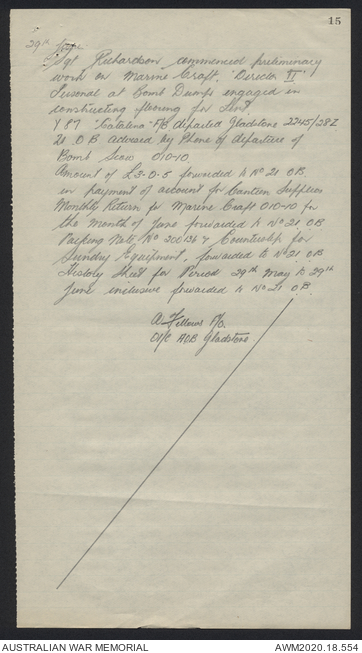 15
29th June
Sgt Richardson commenced preliminary
work on Marine Craft. "Director II"
Personal at Bomb Dumps engaged in
constructing flooring for Tent
Y87 "Catalina" F/B departed Gladstone 2245/28Z
21 O B advised by Phone of departure of
Bomb Scow 010-10.
Amount of £3-0-5 forwarded to No 21 OB
in payment of account for Canteen Supplies
Monthly Return for Marine Craft 010-10 for
the month of June forwarded to No 21 OB.
Packing Note No 200134 & Counterslip for
Sundry Equipment, forwarded to No 21 OB
History Sheet for Period 29th May to 29th
June inclusive forwarded to No 21 OB.
A. Fellows P/O.
O I/C AOB Gladstone
AUSTRALIAN WAR MEMORIAL
AWM2020.18.554